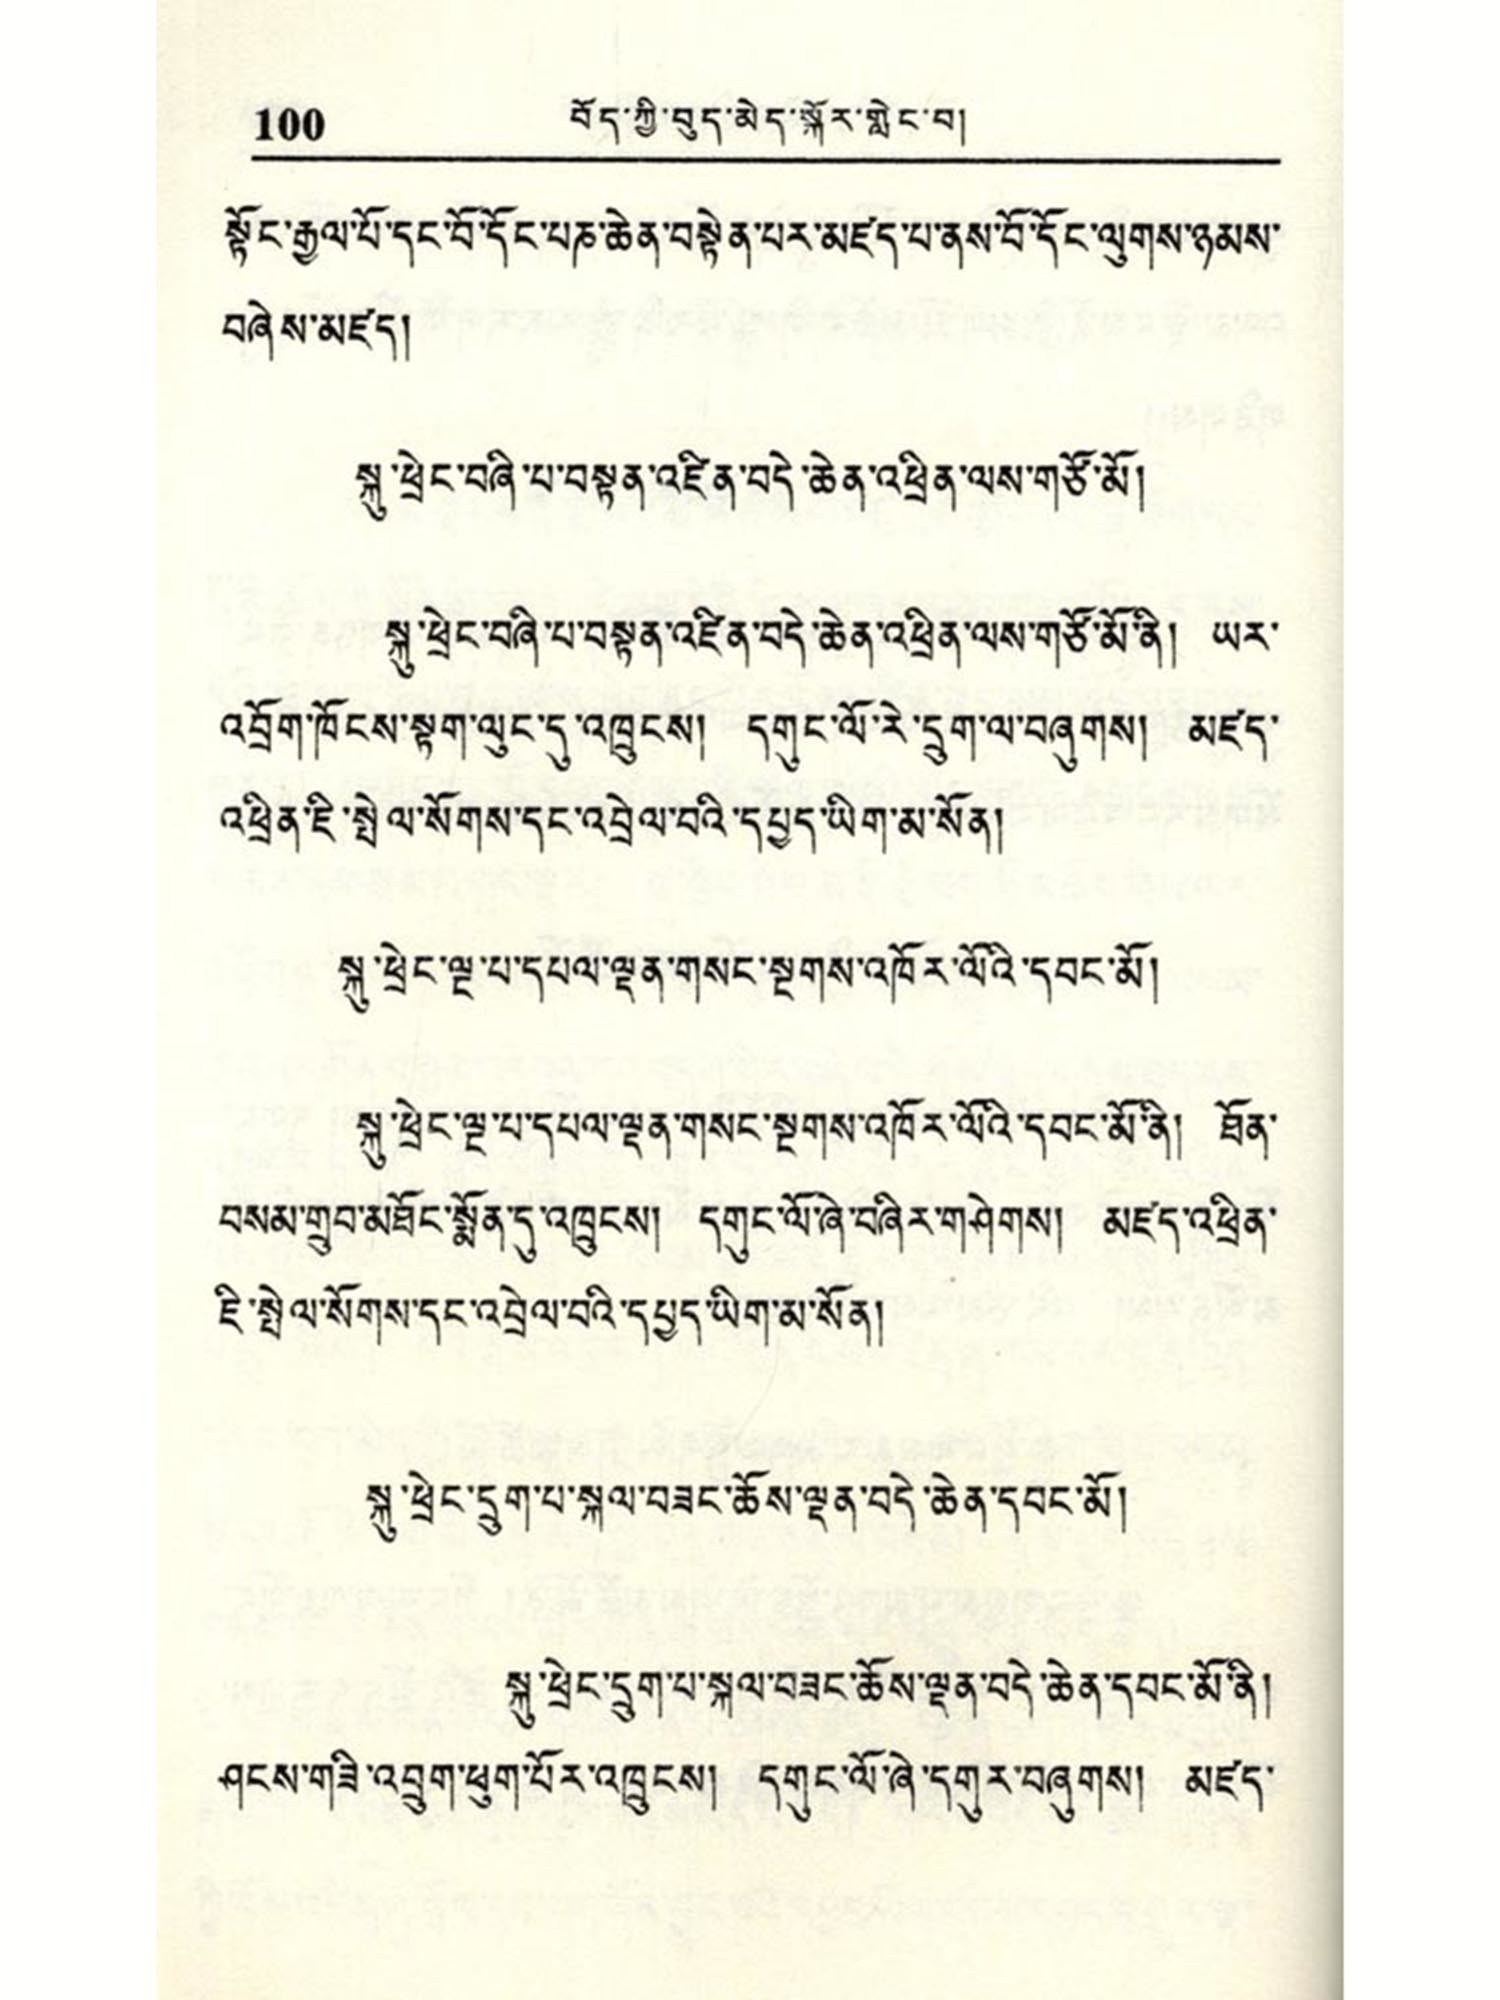 100 བོད་ཀྱི་བུད་མེད་སྐོར་གླེང་བ།
སྟོང་རྒྱལ་པོ་དང་བོ་དོང་པཎ་ཆེན་བསྟེན་པར་མཛད་པ་ནས་བོ་དོང་ལུགས་ཉམས་
བཞེས་མཛད།
སྐུ་ཕྲེང་བཞི་པ་བསྟན་འཛིན་བདེ་ཆེན་འཕྲིན་ལས་གཙོ་མོ།
སྐུ་ཕྲེང་བཞི་པ་བསྟན་འཛིན་བདེ་ཆེན་འཕྲིན་ལས་གཙོ་མོ་ནི། ཡར་
འབྲོག་ཁོངས་སྟག་ལུང་དུ་འཁྲུངས། དགུང་ལོ་རེ་དྲུག་ལ་བཞུགས། མཛད་
འཕྲིན་ཇི་སྤེལ་སོགས་དང་འབྲེལ་བའི་དཔྱད་ཡིག་མ་སོན།
སྐུ་ཕྲེང་ལྔ་པ་དཔལ་ལྡན་གསང་སྔགས་འཁོར་ལོའི་དབང་མོ།
སྐུ་ཕྲེང་ལྔ་པ་དཔལ་ལྡན་གསང་སྔགས་འཁོར་ལོའི་དབང་མོ་ནི། ཐོན་
བསམ་གྲུབ་མཐོང་སྨོན་དུ་འཁྲུངས། དགུང་ལོ་ཞེ་བཞིར་གཤེགས། མཛད་འཕྲིན་
ཇི་སྤེལ་སོགས་དང་འབྲེལ་བའི་དཔྱད་ཡིག་མ་སོན།
སྐུ་ཕྲེང་དྲུག་པ་སྐལ་བཟང་ཆོས་ལྡན་བདེ་ཆེན་དབང་མོ།
སྐུ་ཕྲེང་དྲུག་པ་སྐལ་བཟང་ཆོས་ལྡན་བདེ་ཆེན་དབང་མོ་ནི།
ཤངས་གཟི་འབྲུག་ཕུག་པོར་འཁྲུངས། དགུང་ལོ་ཞེ་དགུར་བཞུགས། མཛད་